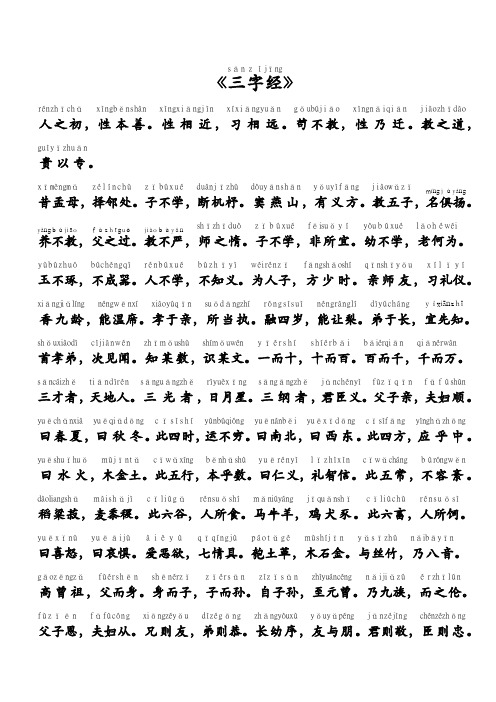 sānzìjīng
《三字经》
rénzhīchū xìngběnshàn xìngxiāngjìn xíxiāngyuǎn gǒubújiào xìngnǎiqiān jiāozhīdào
人之初，性本善。性相近，习相远。苟不教，性乃迁。教之道，
guìyǐzhuān
贵以专。
xīmèngmǔ zélínchǔ zǐbùxué duànjīzhù dòuyānshān yǒuyìfāng jiāowǔzǐ míngjùyáng
昔孟母，择邻处。子不学，断机杼。窦燕山，有义方。教五子，名俱扬。
yǎngbújiāo fùzhīguò jiāobùyán shīzhīduò zǐbùxué fēisuǒyí yòubùxué lǎohéwéi
养不教，父之过。教不严，师之惰。子不学，非所宜。幼不学，老何为。
yùbùzhuó bùchéngqì rénbùxué bùzhīyì wéirénzǐ fāngshàoshí qīnshīyǒu xílǐyí
玉不琢，不成器。人不学，不知义。为人子，方少时。亲师友，习礼仪。
xiāngjiǔlíng néngwēnxí xiàoyúqīn suǒdāngzhí róngsìsuì néngrànglí dìyúzhǎng yíxiānzhī
香九龄，能温席。孝于亲，所当执。融四岁，能让梨。弟于长，宜先知。
shǒuxiàodì cìjiànwén zhīmǒushù shímǒuwén yīérshí shíérbǎi bǎiérqiān qiānérwàn
首孝弟，次见闻。知某数，识某文。一而十，十而百。百而千，千而万。
sāncáizhě tiāndìrén sānguāngzhě rìyuèxīng sāngāngzhě jūnchényì fùzǐqīn fūfùshùn
三才者，天地人。三光者，日月星。三纲者，君臣义。父子亲，夫妇顺。
yuēchūnxià yuēqiūdōng cǐsìshí yùnbùqióng yuēnánběi yuēxīdōng cǐsìfāng yìnghūzhōng
曰春夏，曰秋冬。此四时，运不穷。曰南北，曰西东。此四方，应乎中。
yuēshuǐhuǒ mùjīntǔ cǐwǔxíng běnhūshù yuērényì lǐzhìxìn cǐwǔcháng bùróngwěn
曰水火，木金土。此五行，本乎数。曰仁义，礼智信。此五常，不容紊。
dàoliángshū màishǔjì cǐliùgǔ rénsuǒshí mǎniúyáng jīquǎnshǐ cǐliùchù rénsuǒsì
稻粱菽，麦黍稷。此六谷，人所食。马牛羊，鸡犬豕。此六畜，人所饲。
yuēxǐnù yuēāijù àiwùyù qīqíngjù páotǔgé mùshíjīn yǔsīzhú nǎibāyīn
曰喜怒，曰哀惧。爱恶欲，七情具。匏土革，木石金。与丝竹，乃八音。
gāozēngzǔ fùérshēn shēnérzǐ zǐérsūn zìzǐsūn zhìyuánzēng nǎijiǔzú érzhīlún
高曾祖，父而身。身而子，子而孙。自子孙，至元曾。乃九族，而之伦。
fùzǐēn fūfùcóng xiōngzéyǒu dìzégōng zhǎngyòuxù yǒuyǔpéng jūnzéjìng chénzézhōng
父子恩，夫妇从。兄则友，弟则恭。长幼序，友与朋。君则敬，臣则忠。